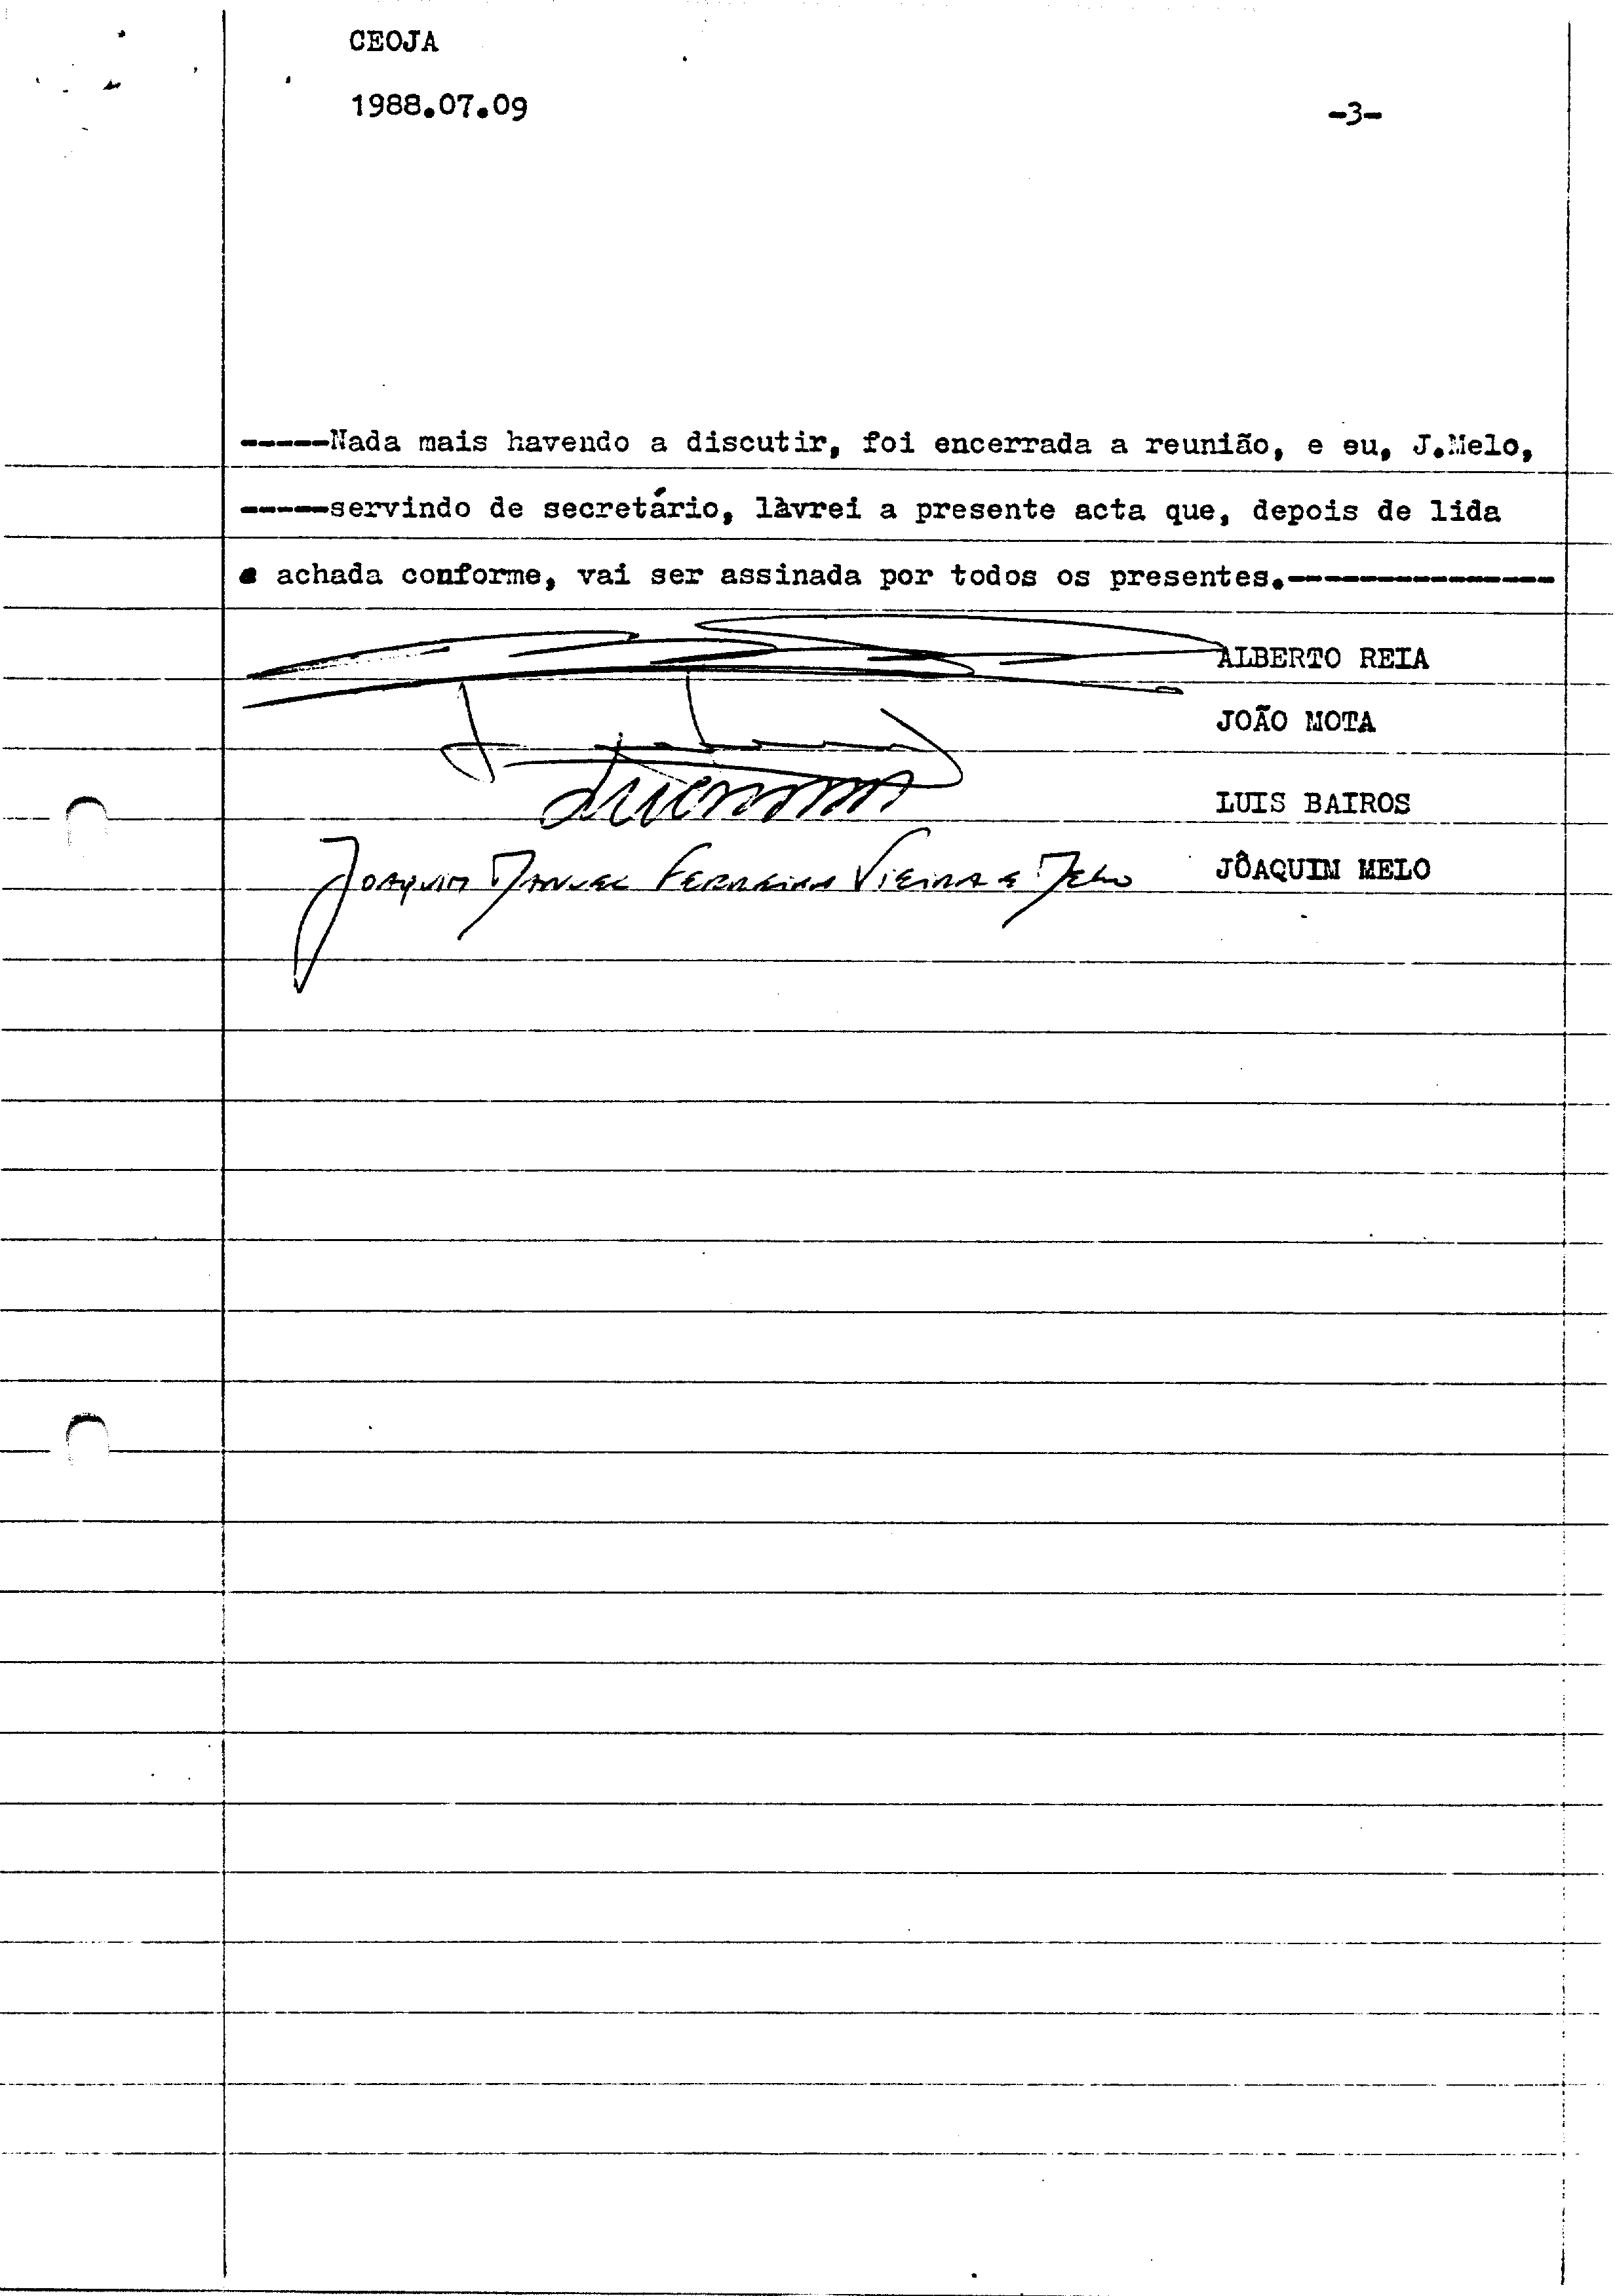 CEOJA
1988.07.09
-3-
-----Nada mais havendo a discutir, foi encerrada a reunião, e eu, J.Melo,
-----servindo de secretário, làvrei a presente acta que, depois de lida
e achada conforme, vai ser assinada por todos os presentes.---------------
ALBERTO REIA
JOÃO MOTA
LUIS BAIROS
Joaquim Manuel Ferreira Vieira e Melo JÔAQUIM MELO